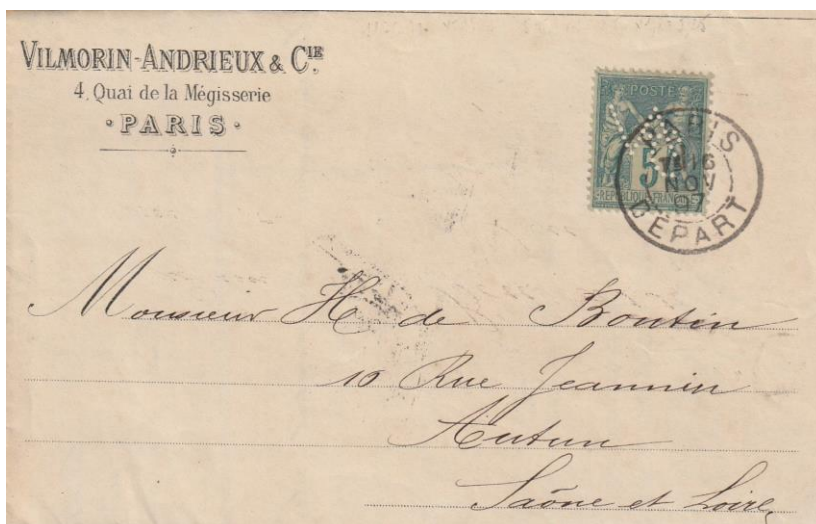 VILMORIN-ANDRIEUX & CIE
4, Quai de la Mégisserie
PARIS
POSTE
5
REPUBLIQUE FRANÇAISE
PARIS
16
NOV
97
DEPART
Monsieur H. de Boutin
10 Rue Jeannin
Autun
Saône et Loire,